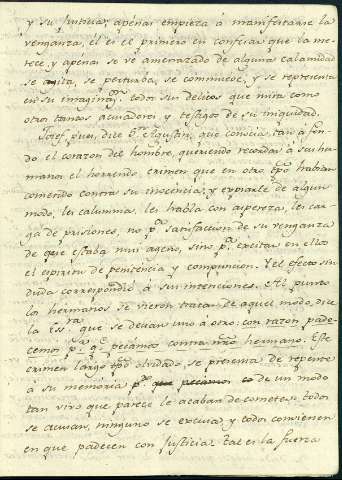 y su Justicia, apenas empieza á manifestarse la
venganza, el es el primero en confesar que la me-
rece, y apenas se vé amenazado de alguna calamidad
se agita, se perturba, se commueve, y se representa
en su imaginaⁿ. todos sus delitos que mira como
otros tantos acusadores y testigos de su iniquidad.
Josef pues, dice Sⁿ. Agustin, que conocia tan á fon-
do el corazon del hombre, queriendo recordar á sus her-
manos el horrendo crimen que en otro tpō habian
cometido contra su inocencia, y expiarle de algun
modo, les calumnia, les habla con aspereza, les car-
ga de prisiones, no pʳ. satisfaccion de su venganza
de que estaba mui ageno, sino pʳ. excitar en ellos
el espiritu de penitencia y compuncion. Y el efecto sin
duda correspondió á sus intenciones. Al punto
los hermanos se vieron tratar de aquel modo, dice
la Essʳᵃ. que se decian uno á otro: con razon pade-
cemos pʳ. q̄. pecamos contra nr̄o hermano. Este
crimen largo tpō olvidado, se presenta de repente
á su memoria de un modo
tan vivo que parece le acaban de cometer: todos
se acusan, ninguno se excusa, y todos convienen
en que padecen con Justicia. Tal es la fuerza